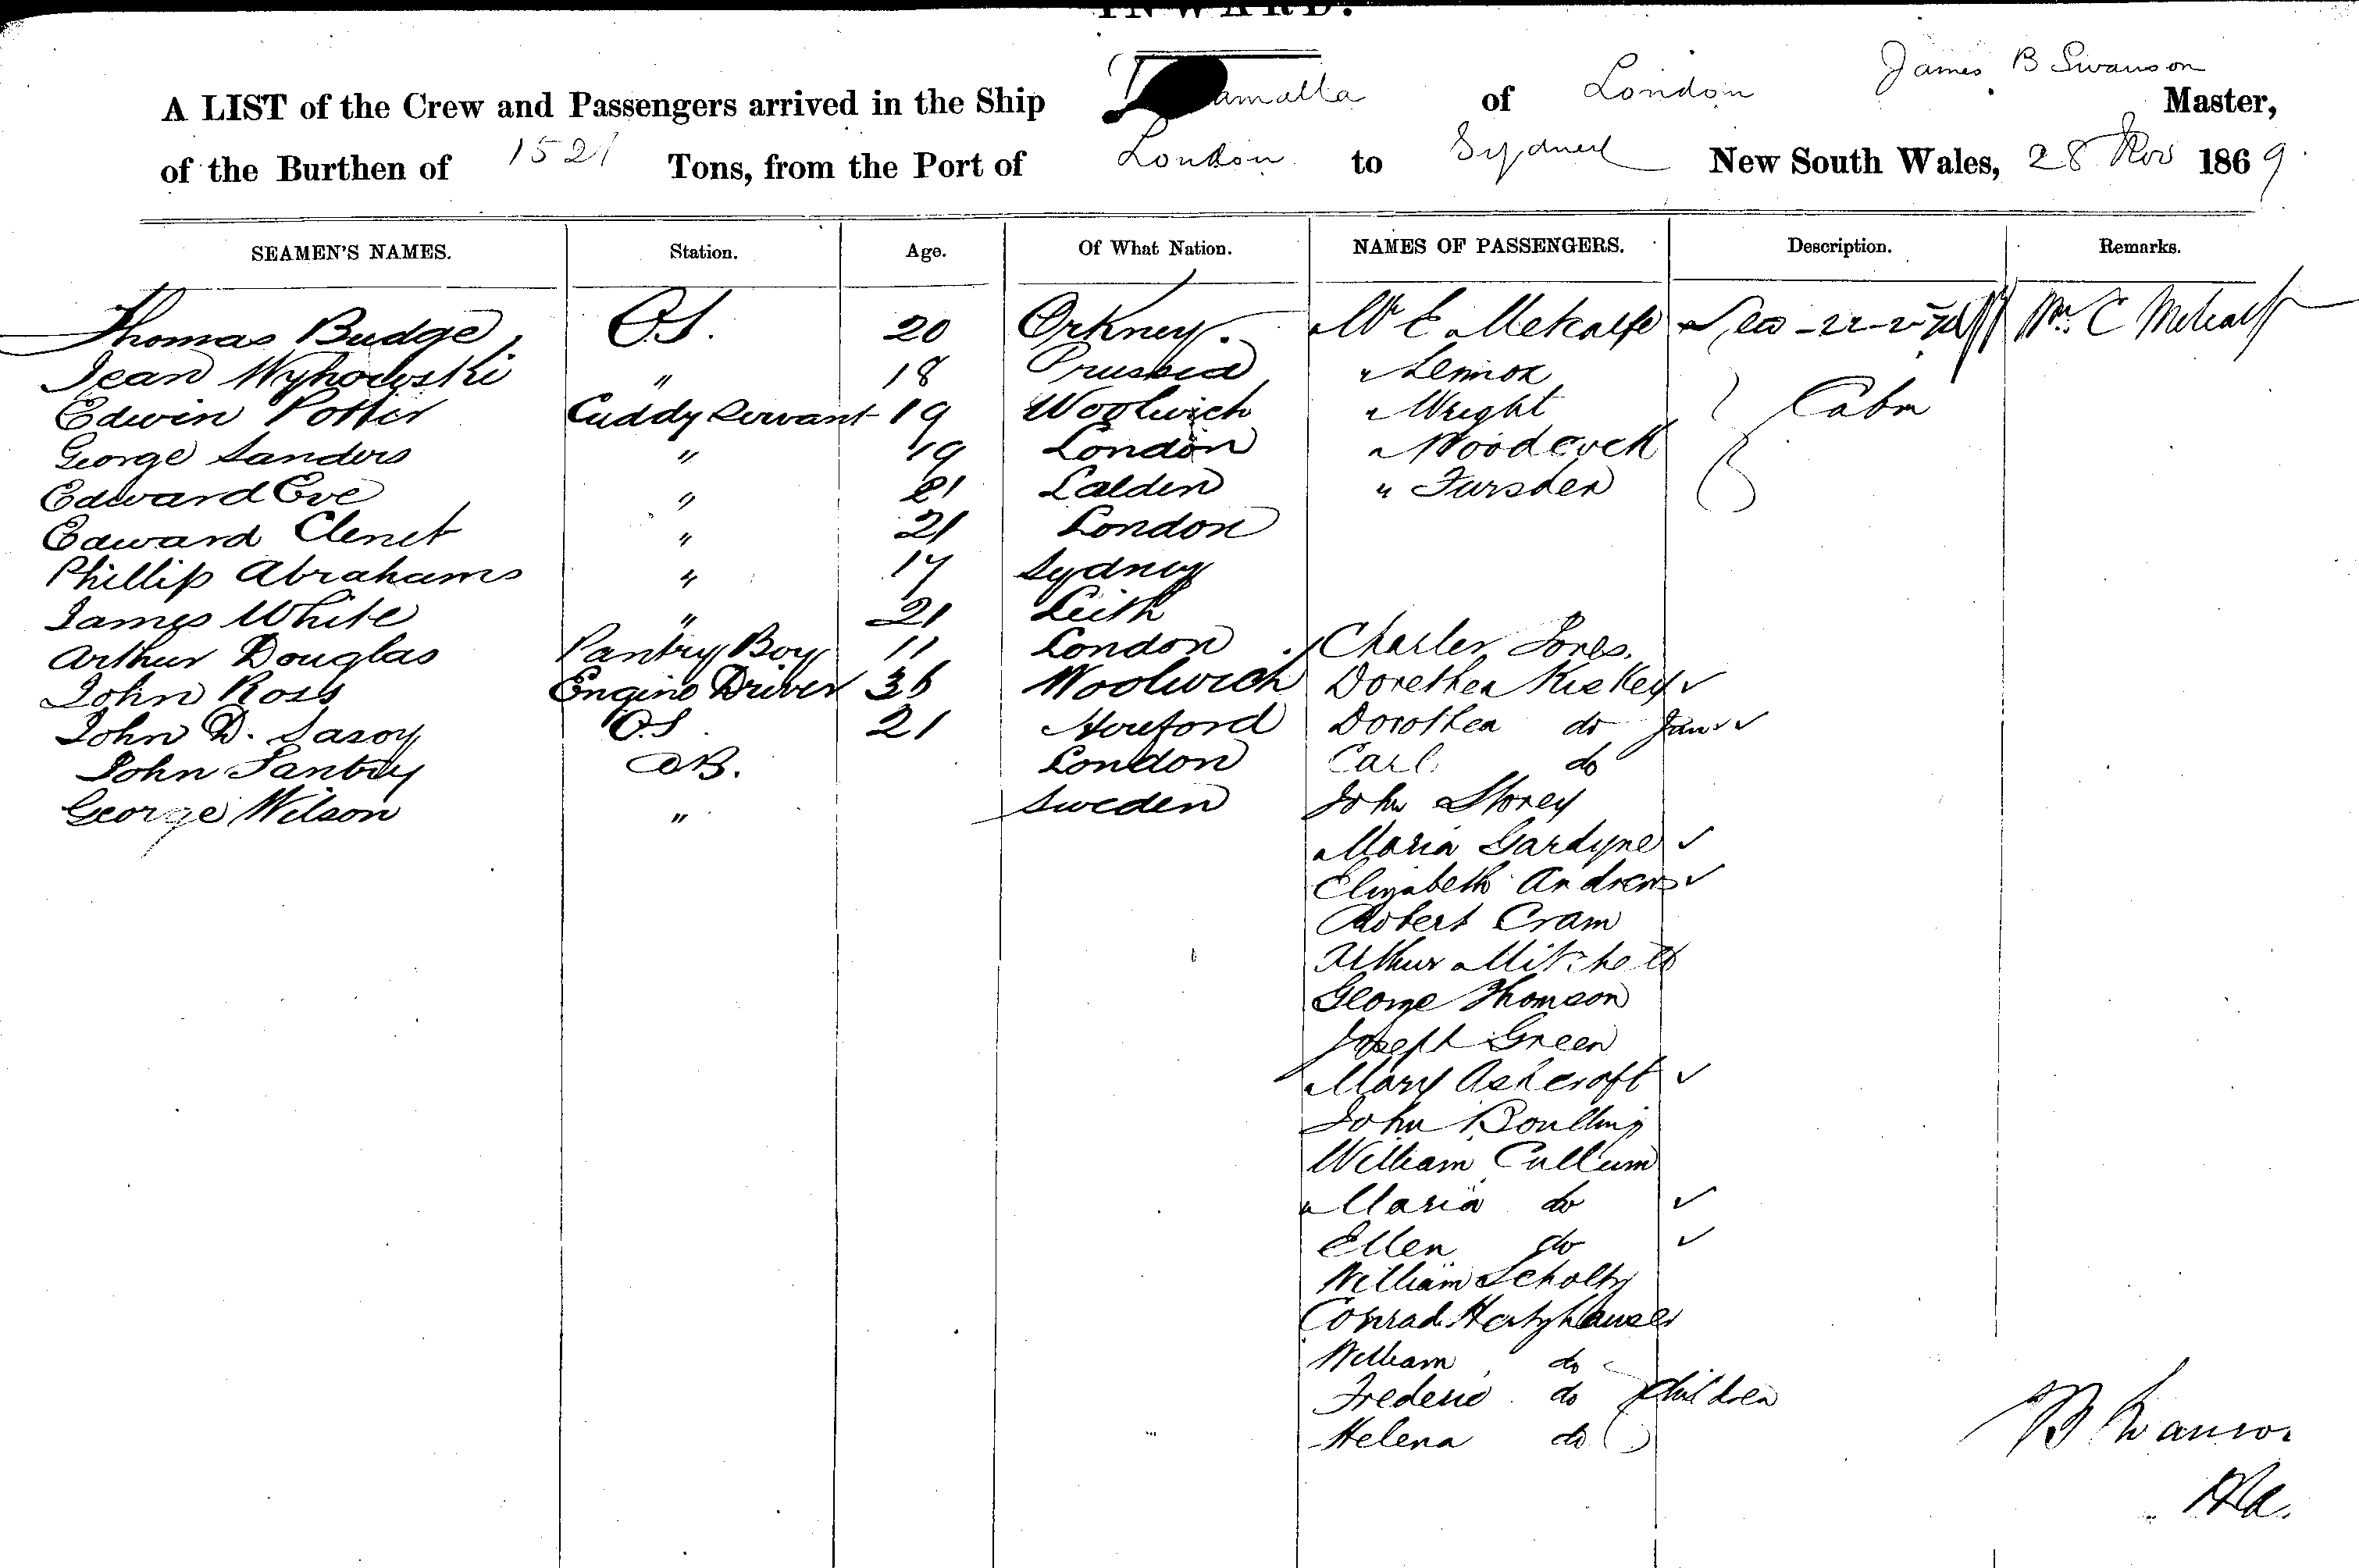 INWARD.
A LIST of the Crew and Passengers arrived in the Ship of London James B Swanson Master,
of the Burthen of 1521 Tons, from the Port of London to Sydney New South Wales, 28 Nov 1869.
SEAMEN'S NAMES. Station. Age. Of What Nation. NAMES OF PASSENGERS. Description. Remarks.
Thomas Budge O.S. 20 Orkney. Mr E Metcalfe Mr. C Metcalf
Jean Wyhowski " 18 Prussia " Lennox
Edwin Potter Cuddy Servant 19 Woolwich " Wright Cabin
George Sanders " 19 London " Woodcock
Edward Eve " 21 " Fursden
Edward Clenet " 21 London
Phillip Abrahams " 17 Sydney
James White " 21 Leith
Arthur Douglas Pantry Boy 11 London Charles Jones.
John Ross Engine Driver 36 Woolwich Dorethea
John D. O.S 21 Hereford Dorothea do
John A.B. London Carl do
George Wilson " Sweden John Storey
Maria Gardyne ✓
Elizabeth Andrews ✓
Robert Cram
Arthur Mitchell
George Thomson
Joseph Green
Mary Ashcroft ✓
John Boulling
William Cullum
Maria do ✓
Ellen do ✓
William Scholtz
Conrad
William do
Frederic do children
Helena do
B Swanson